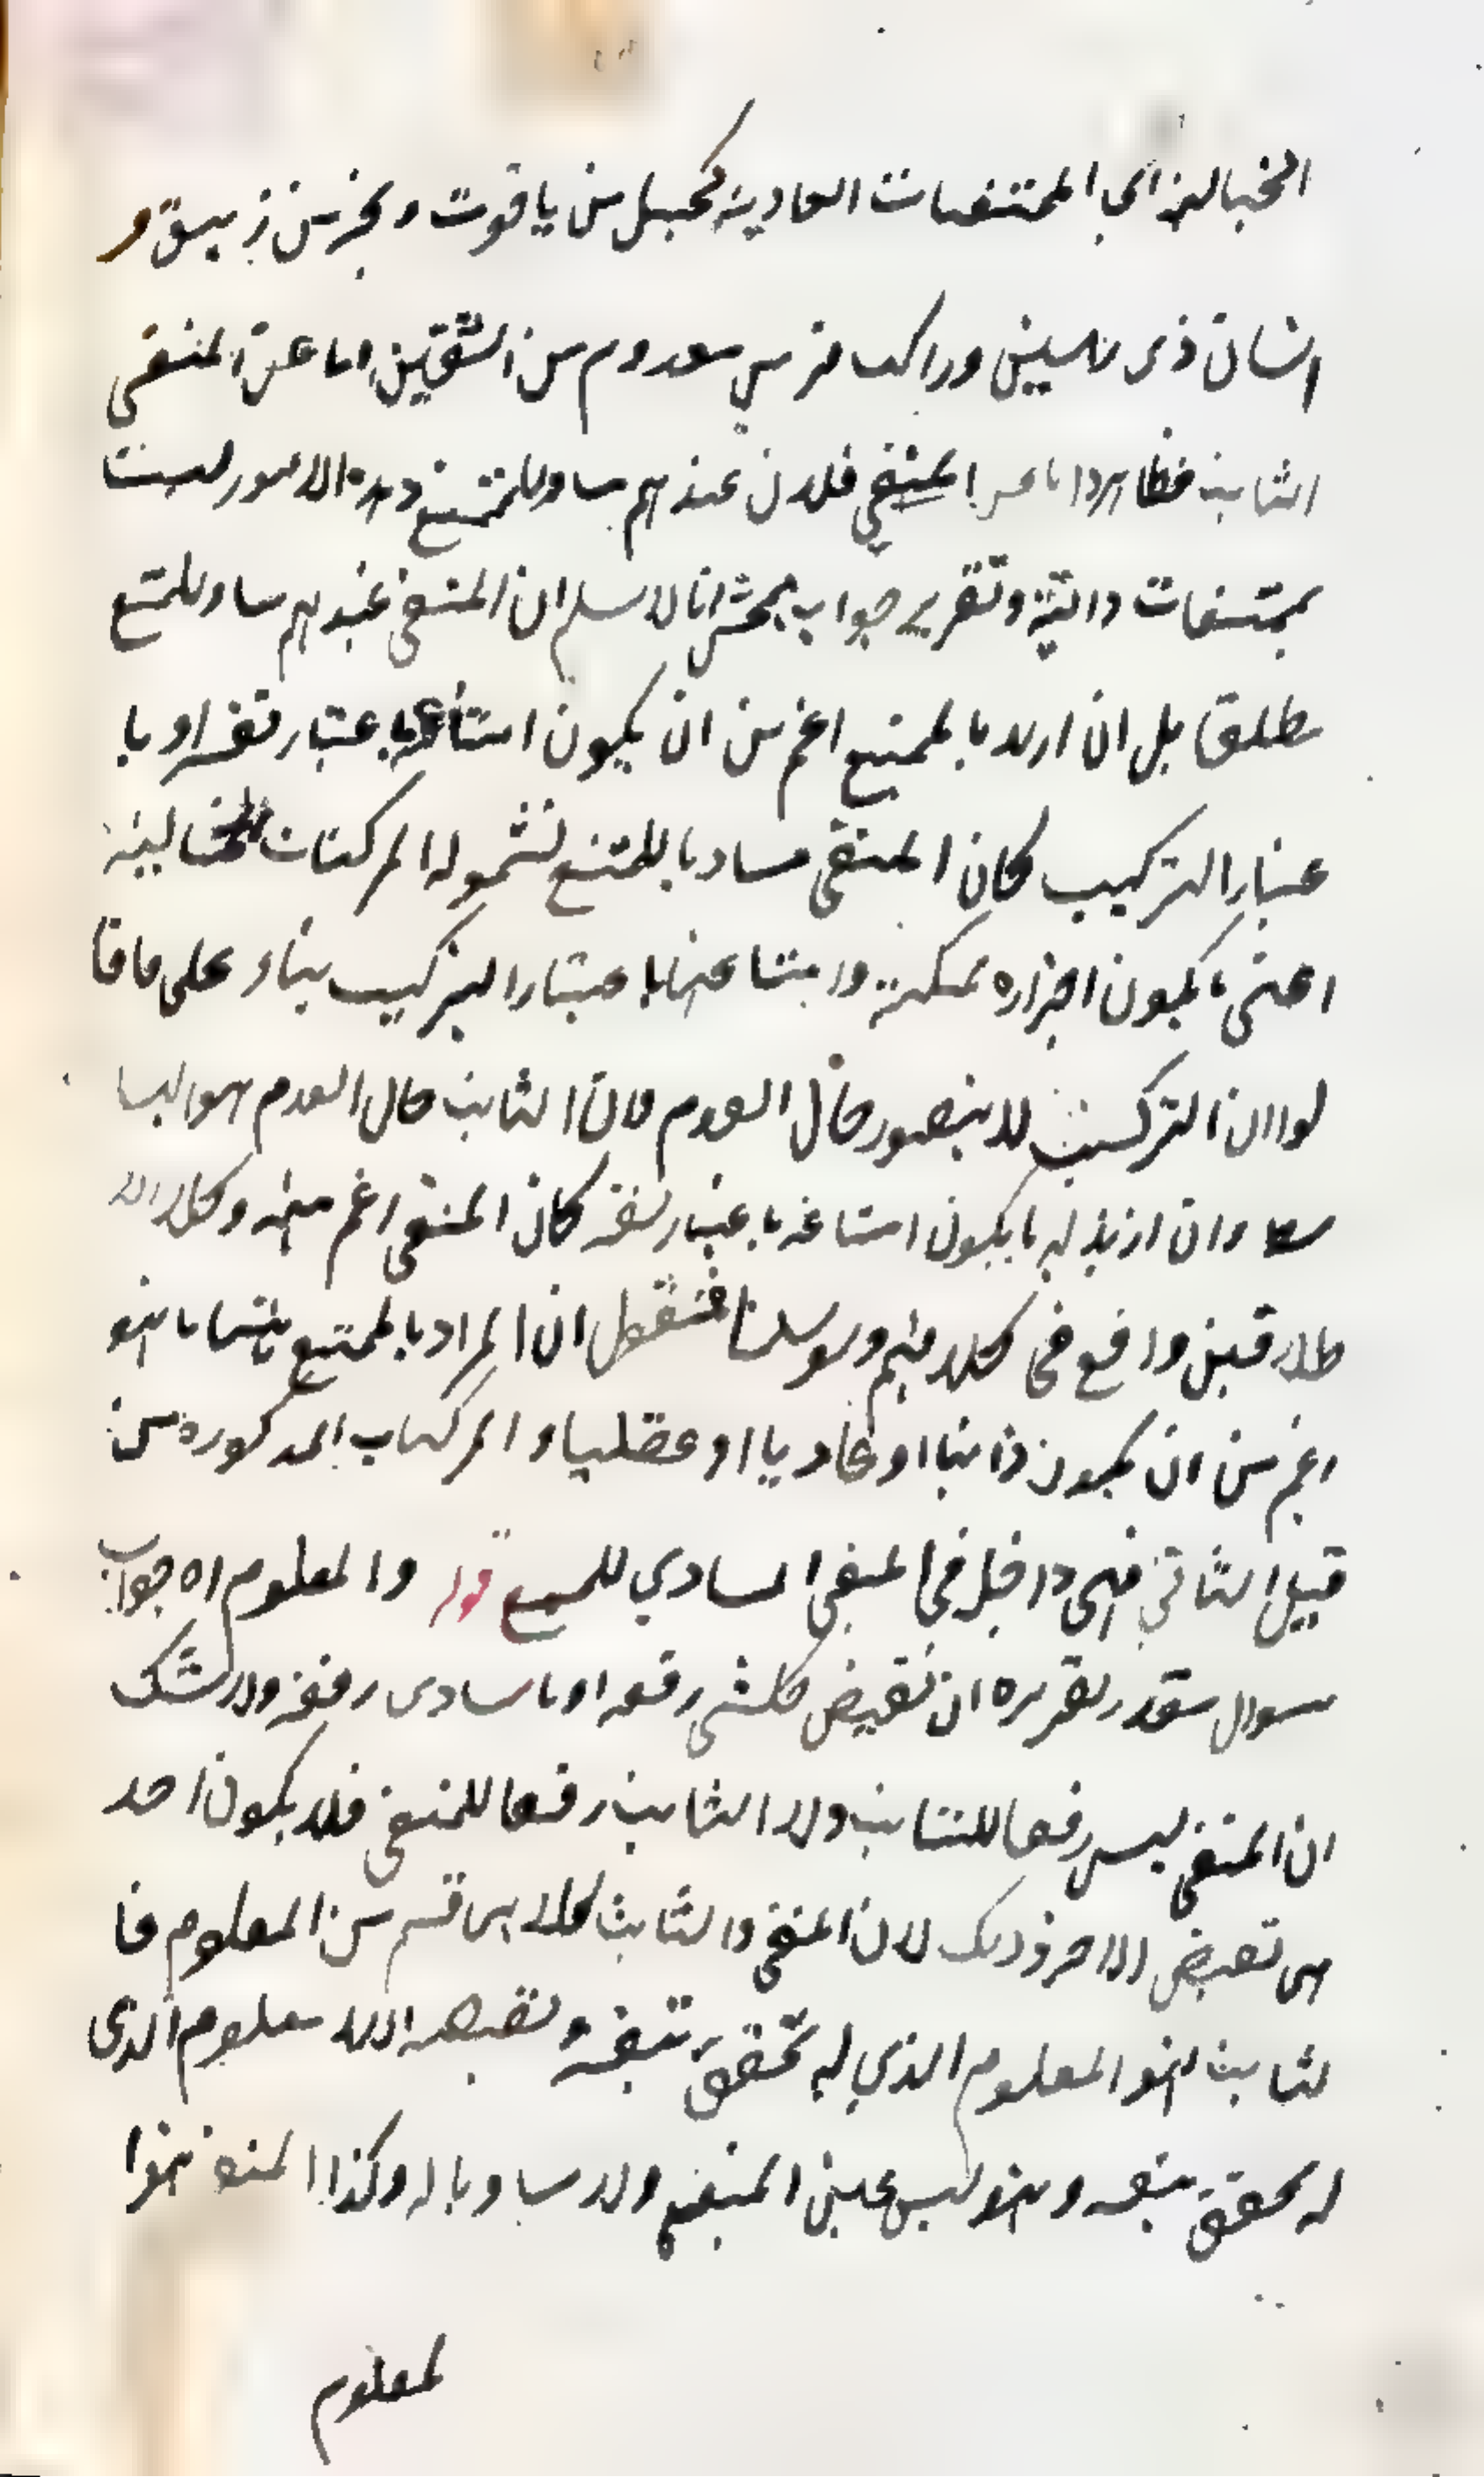 الخياليه اي الممتنعات العاديه كجبل من ياقوت وبحر من زيبق و
انسان ذي راسين وراكب فرس معدوم من الشقين اما عن المنفي
الثابت فظاهر واما عن المنفي فلان عندهم مساو للممتنع وهذه الامور ليست
بممتنعات ذاتية وتقرير جواب بحث انا لا نسلم ان المنفي عندهم مساو للممتنع
مطلق بل ان اريد بالممتنع اعم من ان يكون امتناعه باعتبار نفسه او با
عتبار التركيب كان المنفي مساويا للممتنع لشموله المركبات الخيالية
اعني ما يكون اجزاؤه ممكنة وامتناعها باعتبار التركيب بناء على ما قا
لوا ان التركيب لا يتصور حال العدم فان الثابت حال العدم هو البسا
ئط وان اريد به ما يكون امتناعه باعتبار نفسه كان المنفي اعم منه وكلا الا
طلاقين واقع في كلامهم ولو سلمنا فنقول ان المراد بالممتنع ههنا ما هو
اعم من ان يكون ذاتيا او عاديا او عقليا والمركبات المذكورة من
قبيل الثاني فهي داخل في المنفي المساوي للممتنع قوله والمعلوم اه جواب
سوال مقدر تقريره ان نقيض كل شي رفعه او ما يساوي رفعه ولا شك
ان المنفي ليس رفعا للثابت ولا الثابت رفعا للمنفي فلا يكون احد
هي نقيض الاخر وذلك لان المنفي والثابت كلاهما قسم من المعلوم فا
لثابت هو المعلوم الذي له تحقق بنفسه ونقيضه اللا معلوم الذي
له تحقق بنفسه وهو ليس عين المنفي ولا مساويا له وكذا المنفي هو ا
لمعلوم